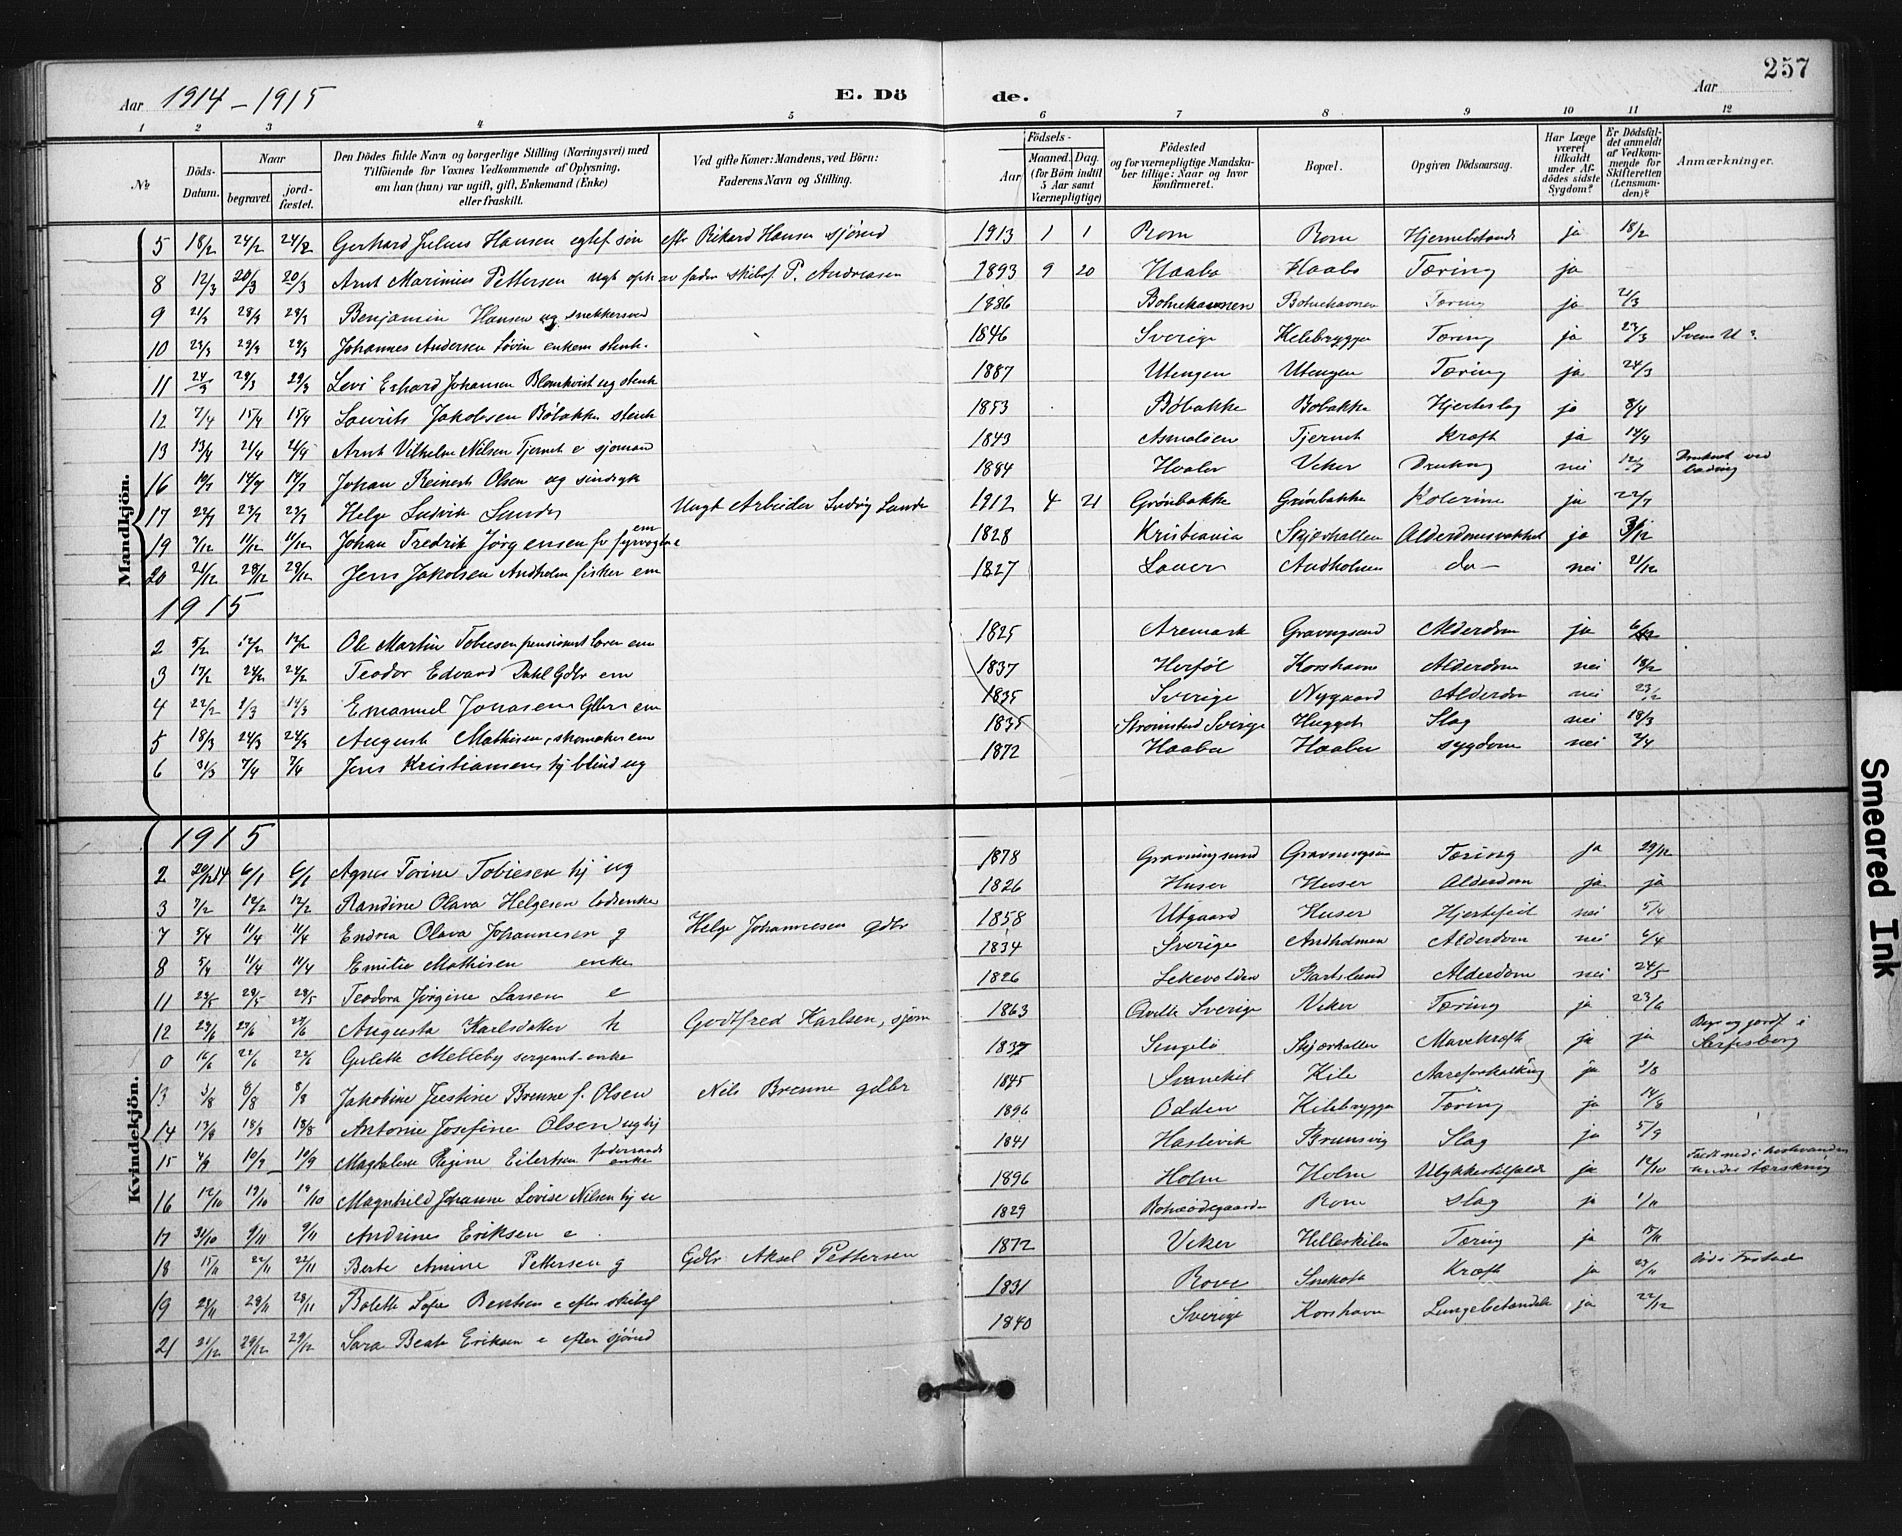 257
Aar 1914-1915 E. Dö de. Aar
1 2 3 4 5 6 7 8 9 10 11 12
№ Döds-Datum. Naar begravet. jord-fæstet. Den Dödes fulde Navn og borgerlige Stilling (Næringsvei) med Tilföiende for Voxnes Vedkommende af Oplysning, om han (hun) var ugift, gift, Enkemand (Enke) eller fraskilt. Ved gifte Koner: Mandens, ved Börn: Faderens Navn og Stilling. Födsels- Aar Maaned. Dag. (for Börn indtil 5 Aar samt Værnepligtige) Födested og for værnepligtige Mandskaber tillige: Naar og hvor konfirmeret. Bopæl. Opgiven Dödsaarsag. Har Læge været tilkaldt under Afdödes sidste Sygdom? Er Dödsfaldet anmeldt af Vedkommende for Skifteretten (Lensmanden)? Anmærkninger.
Mandkjön.
5 18/2 24/2 24/2 Gerhard Julius Hansen egtef søn efts Rikard Hansen sjømd 1913 1 1 Rom Rom Hjernebetænd ja 18/2
8 12/3 20/3 20/3 Arnt Marinius Pettersen ugt opt av fader skibsf P. Andreasen 1893 9 20 Haabo Haabo Tæring ja
9 21/3 28/3 28/3 Benjamin Hansen ug snekkersvend 1886 Botnehavnen Botnehavnen Tæring ja 21/3
10 23/3 29/3 29/3 Johannes Andersen Løvin enkem stenh. 1846 Sverige Kilebrygga Tæring ja 23/3 Svensk U?
11 24/3 29/3 29/3 Levi Erhard Johansen Blomkvist ug stenh 1887 Utengen Utengen Tæring ja 24/3
12 7/4 15/4 15/4 Laurits Jakobsen Bøbakke stenh 1853 Bøbakke Bøbakke Hjerteslag ja 8/4
13 13/4 21/4 21/4 Arnt Vilhelm Nilsen Tjernet e sjømand 1843 Asmaløen Tjernet Kræft ja 14/4
16 10/7 14/7 14/7 Johan Reinert Olsen ug 1884 Hvaler Veker Drukning nei 12/7 Druknet ved bading
17 22/7 23/7 23/7 Helge Ludvik Lunde Ungt Arbeider Ludvig Lunde 1912 4 21 Grønbakke Grønbakke Kolerine ja 22/7
19 3/12 11/12 11/12 Johan Fredrik Jørgensen fv fyrvogter em 1828 Kristiania Skjærhallen Alderdomssvakhet ja 3/12
20 21/12 29/12 29/12 Jens Jakobsen Andholm fisker em 1827 Lauer Andholmen do - nei 21/12
1915
2 5/2 12/2 12/2 Ole Martin Tobiesen pensionert lærer em 1825 Aremark Gravningsund Alderdom ja 6/2
3 17/2 24/2 24/2 Teodor Edvard Dahl Gdbr em 1837 Herføl Korshavn Alderdom nei 18/2
4 22/2 1/3 14/3 Emanuel Jonasen Gbr em 1835 Sverige Nygaard Alderdom nei 23/2
5 18/3 24/3 24/3 August Mathisen, skomaker em 1835 Strømstad Sverige Hugget Slag nei 18/3
6 31/3 7/4 7/4 Jens Kristiansen hj blind ug 1872 Haabu Haabu sygdom nei 7/4
Kvindekjön.
1915
2 29/12 14 6/1 6/1 Agnes Torine Tobiesen hj ug 1878 Gravningsund Gravningsun Tæring ja 29/12
3 7/2 12/2 12/2 Randine Olava Helgesen lodsenke 1826 Huser Huser Alderdom ja ja
7 5/4 11/4 11/4 Endrea Olava Johannesen g Helge Johannesen gdbr 1858 Utgaard Huser Hjertefeil nei 5/4
8 5/4 11/4 11/4 Emilie Mathisen enke 1834 Sverige Andholmen Alderdom nei 6/4
11 23/5 29/5 29/5 Teodora Jørgine Larsen e 1826 Lekevolden Barlslund Alderdom nei 24/5
12 23/6 27/6 27/6 Augusta Karlsdatter h Godtfred Karlsen, sjøm 1863 Qville Sverige Veker Tæring ja 23/6
0 16/6 22/6 22/6 Gulette Melleby sergeant-enke 1837 Singelø Skjærhallen Mavekræft ja ja Begr og jordf i Sarpsborg
13 3/8 8/8 8/8 Jakobine Justine Brenne f. Olsen Nils Brenne gdbr 1845 Svanekil Kile Aareforkalkning ja 3/8
14 13/8 18/8 18/8 Antonie Josefine Olsen ug hj 1896 Odden Kilebrygga Tæring ja 14/8
15 4/9 10/9 10/9 Magdalene Regine Eilertsen fadermands enke 1841 Haslevik Brunsvig Slag ja 5/9
16 12/10 19/10 19/10 Magnhild Johanne Lovise Nilsen hj u 1896 Holm Holm Ulykkestilfælde ja 12/10 Faldt ned i hestevandr under tærskning
17 31/10 9/11 9/11 Andrine Eriksen e 1829 Botneødegaarden Rom Slag ja 1/11
18 15/11 22/11 22/11 Berte Amine Pettersen g Gdbr Aksel Pettersen 1872 Veker Helleskilen Tæring ja 15/11
19 23/11 28/11 28/11 Bolette Sofie Bentsen e efter skibsf 1831 Rove Snekott Kræft ja 23/11
21 21/12 29/12 29/12 Sara Beate Eriksen e efter sjømd 1840 Sverige Korshavn Lungebetændelse ja 22/12
Smeared Ink